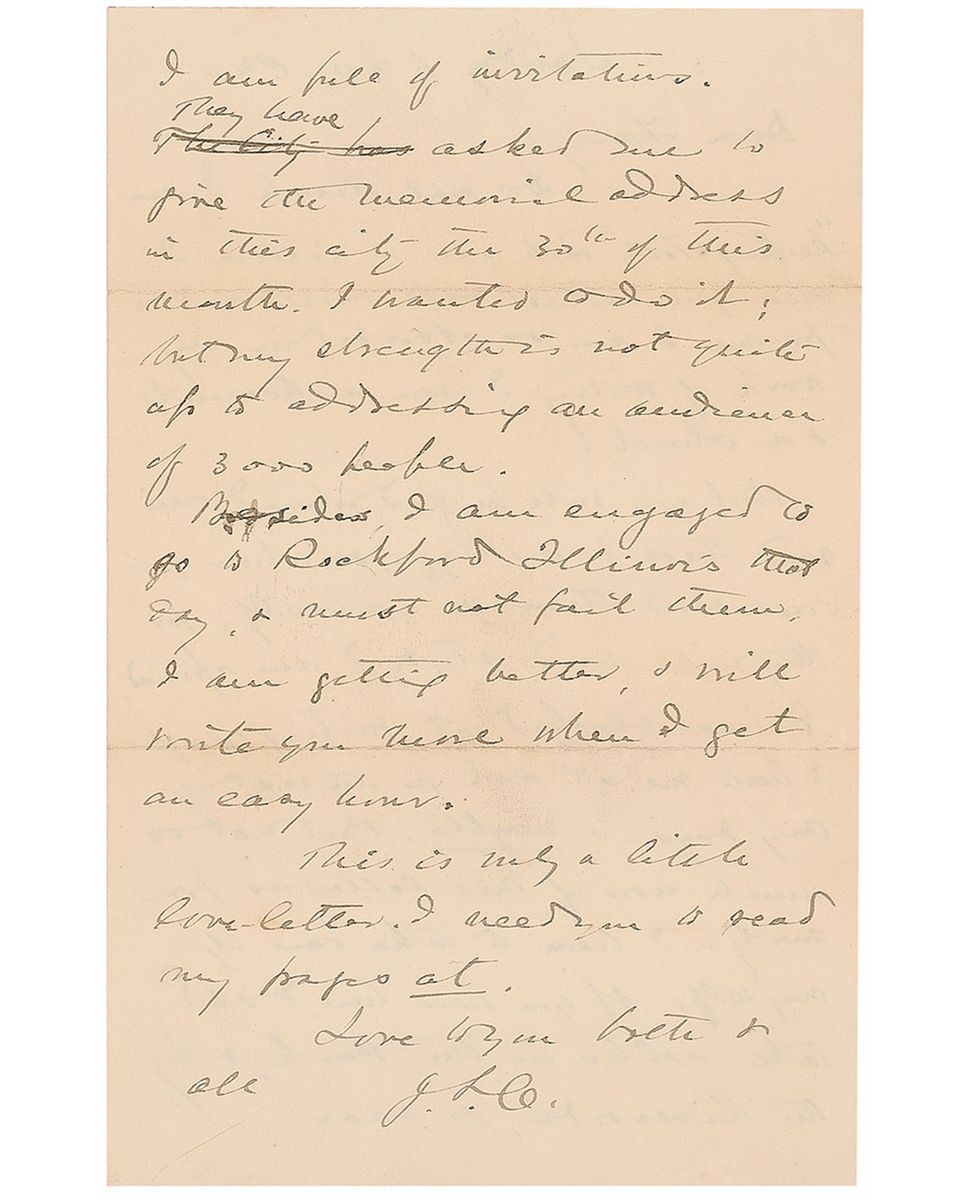 I am full of invitations.
They have
The City has asked me to
give the memorial address
in this city the 30th of this
month. I wanted to do it;
but my strength is not quite
up to addressing an audience
of 3000 people.
Besides, I am engaged to
go to Rockford Illinois that
day, & must not fail them.
I am getting better, & will
write you more when I get
an easy hour.
This is only a little
love-letter. I need you to read
my pages at.
Love to you both &
all J.L.C.